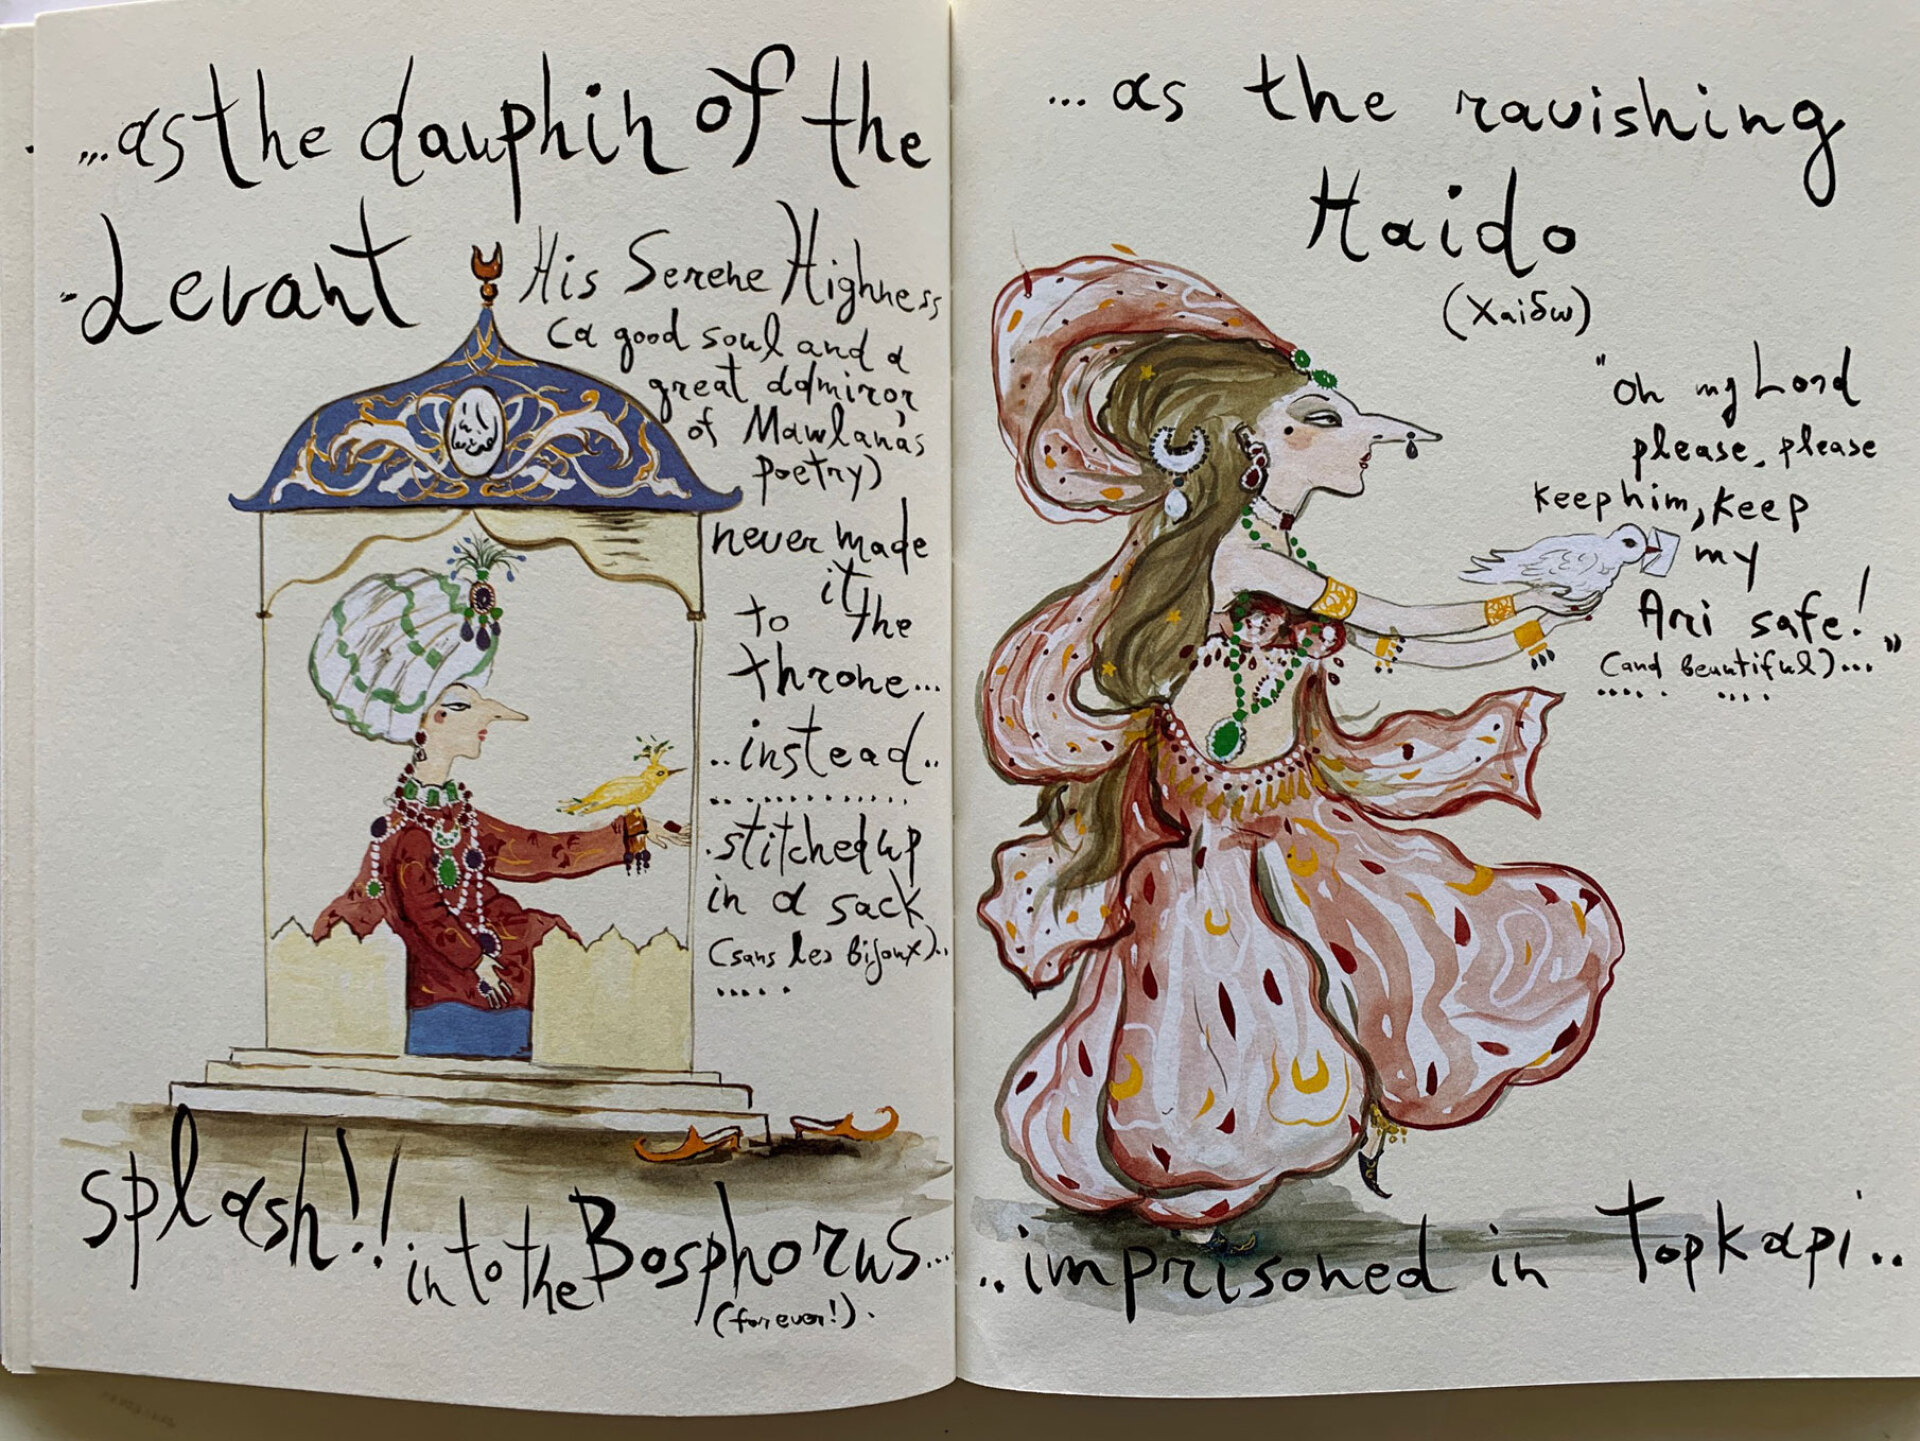 ...as the dauphin of the
Levant
His Serene Highness
(a good soul and a
great admiror
of Mawlana's
poetry)
never made
it,
to the
throne...
..instead..
stitched up
in a sack
(sans les bijoux)..
splash!!
into the Bosphorus...
(forever!).
...as the ravishing
Haido
(Χαιδω)
"Oh my Lord
please, please
keep him, keep
my
Ari safe!
(and beautiful)..."
..imprisoned in Topkapi..